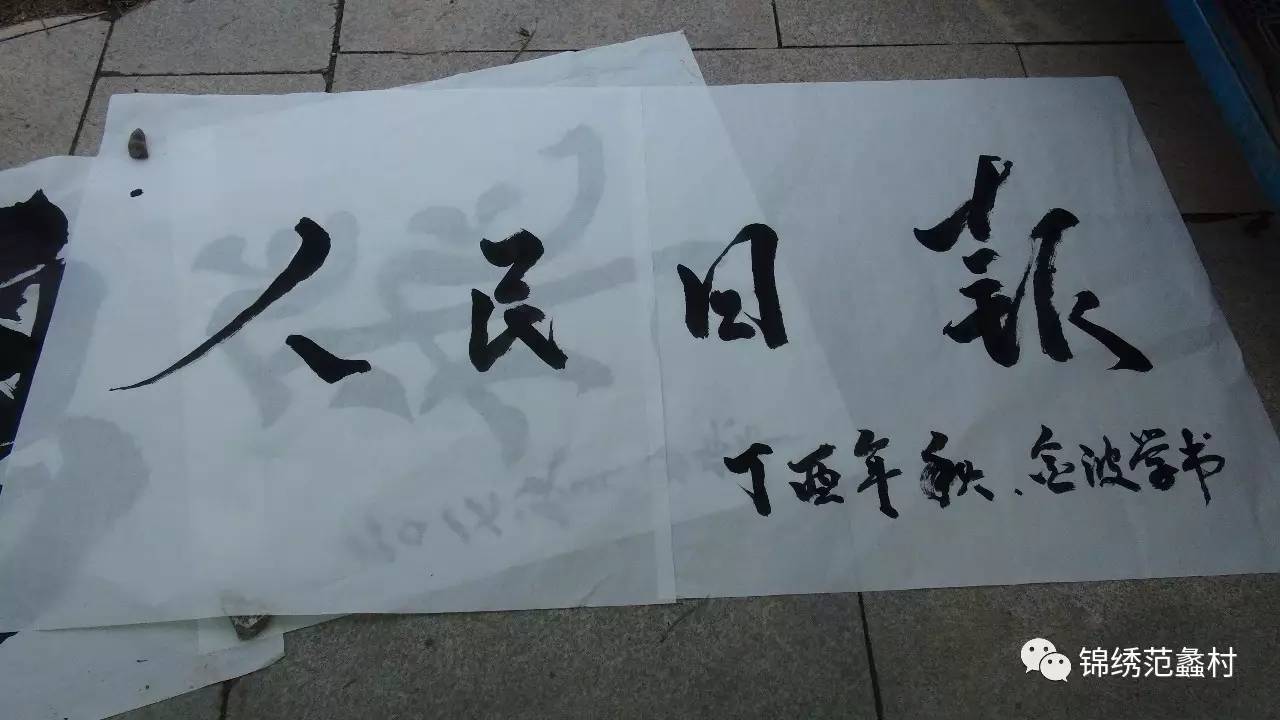 人民日報
丁酉年秋、金波学书
锦绣范蠡村